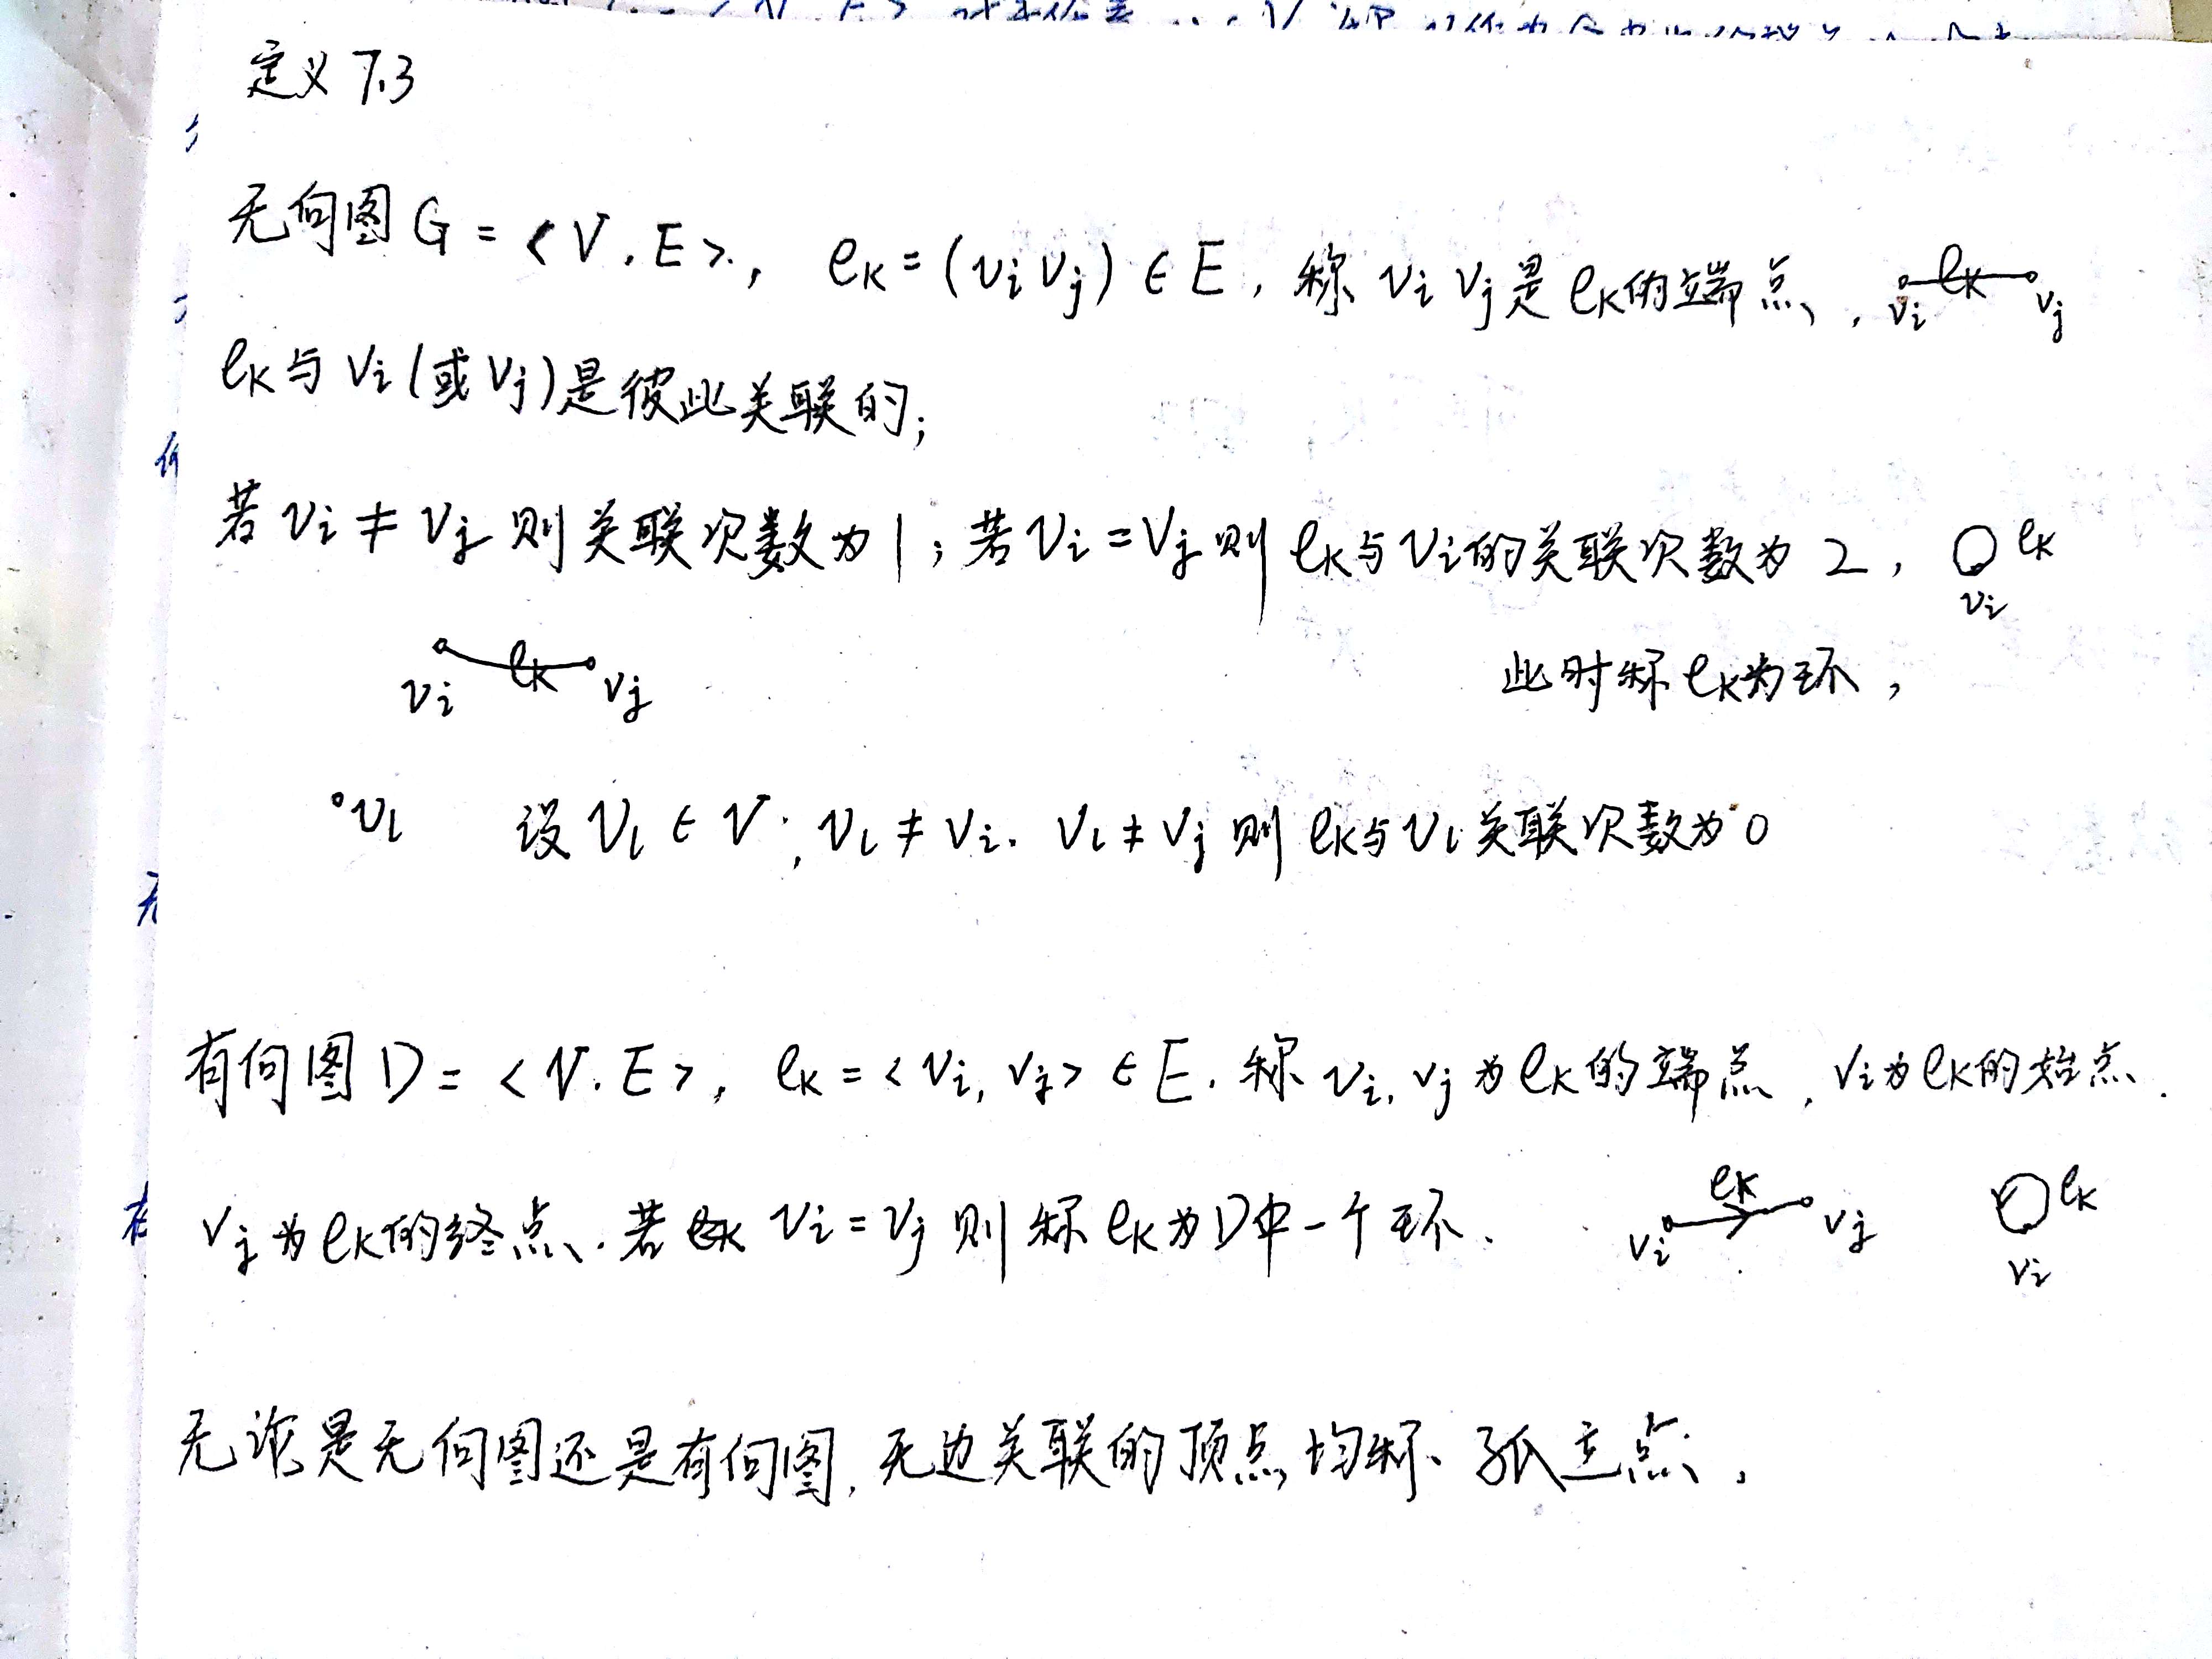 定义 7.3
无向图 G = < V, E >, eₖ = (vᵢ vⱼ) ∈ E, 称 vᵢ vⱼ 是 eₖ的端点, vᵢ eₖ vⱼ
eₖ与 vᵢ (或 vⱼ) 是彼此关联的;
若 vᵢ ≠ vⱼ 则关联次数为 1; 若 vᵢ = vⱼ 则 eₖ与 vᵢ的关联次数为 2, eₖ
vᵢ
vᵢ eₖ vⱼ 此时称 eₖ为环,
vₗ 设 vₗ ∈ V, vₗ ≠ vᵢ. vₗ ≠ vⱼ 则 eₖ与 vₗ 关联次数为 0
有向图 D = < V. E >, eₖ = < vᵢ, vⱼ > ∈ E. 称 vᵢ, vⱼ 为 eₖ的端点, vᵢ为 eₖ的始点.
vⱼ 为 eₖ的终点. 若 vᵢ = vⱼ 则称 eₖ为 D中一个环. vᵢ eₖ vⱼ eₖ
vᵢ
无论是无向图还是有向图, 无边关联的顶点均称 孤立点,